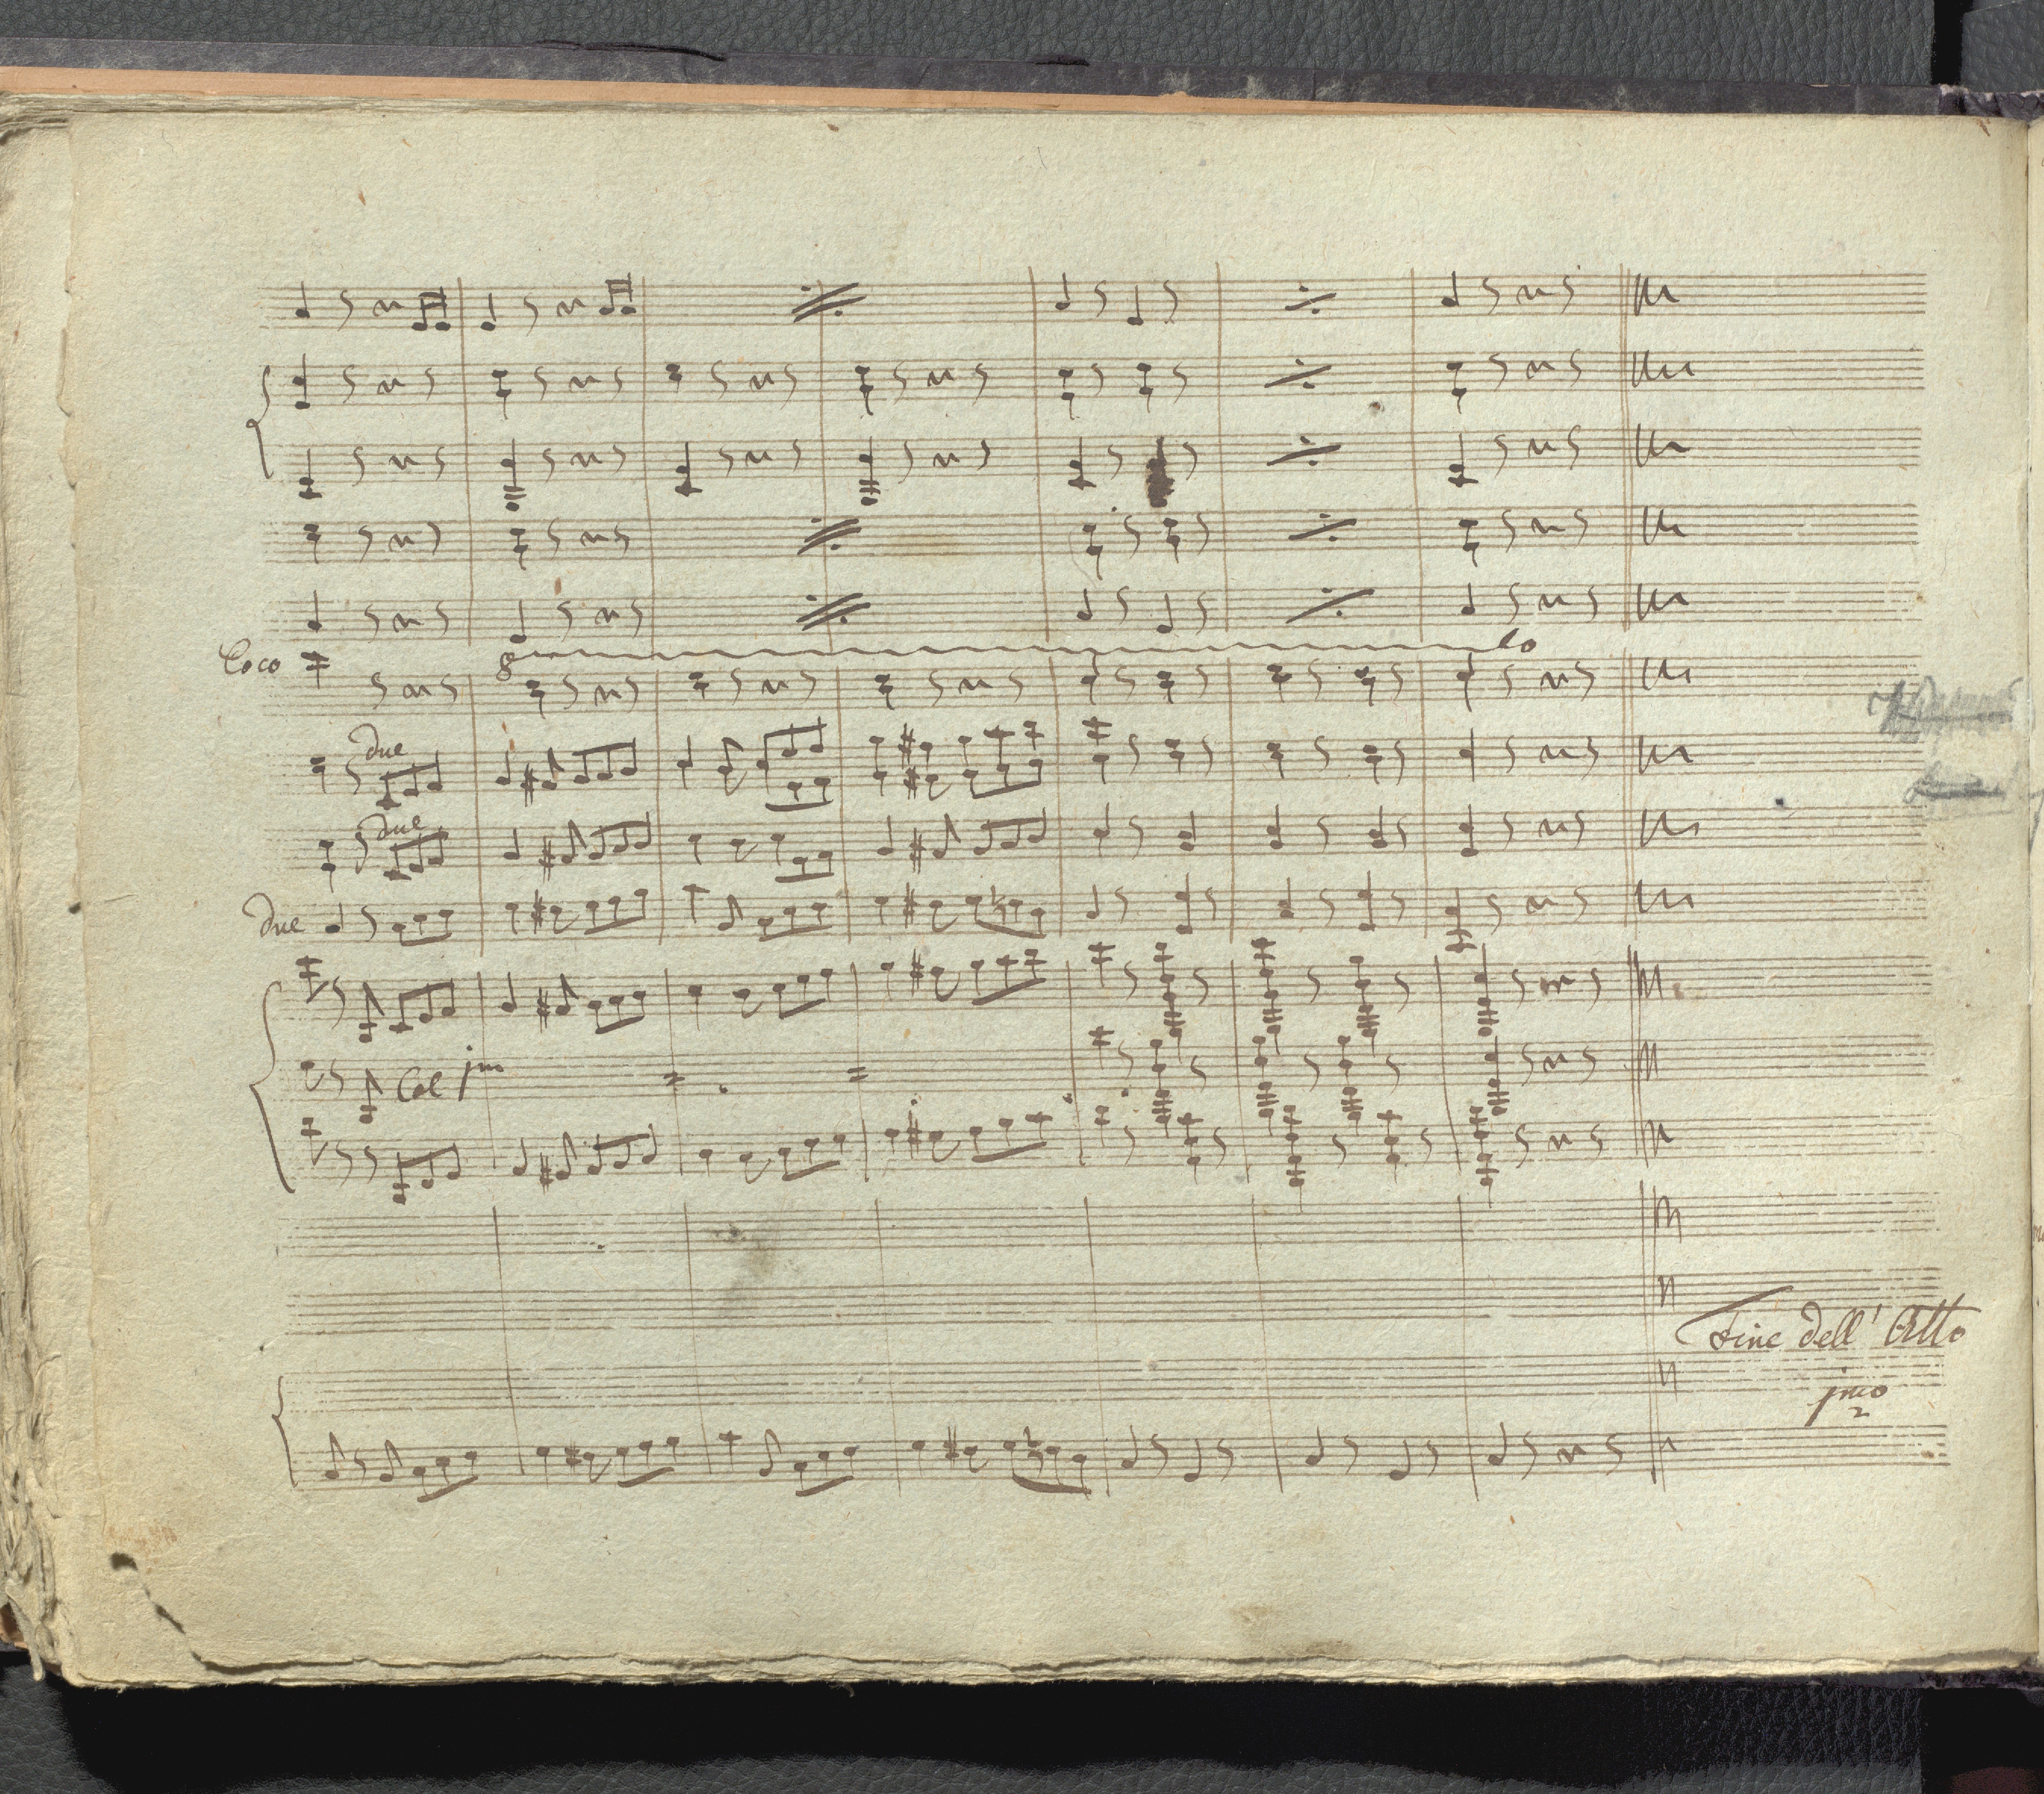 Loco
8 lo
due
due
due
Col jmo
Fine dell' Atto
jmo